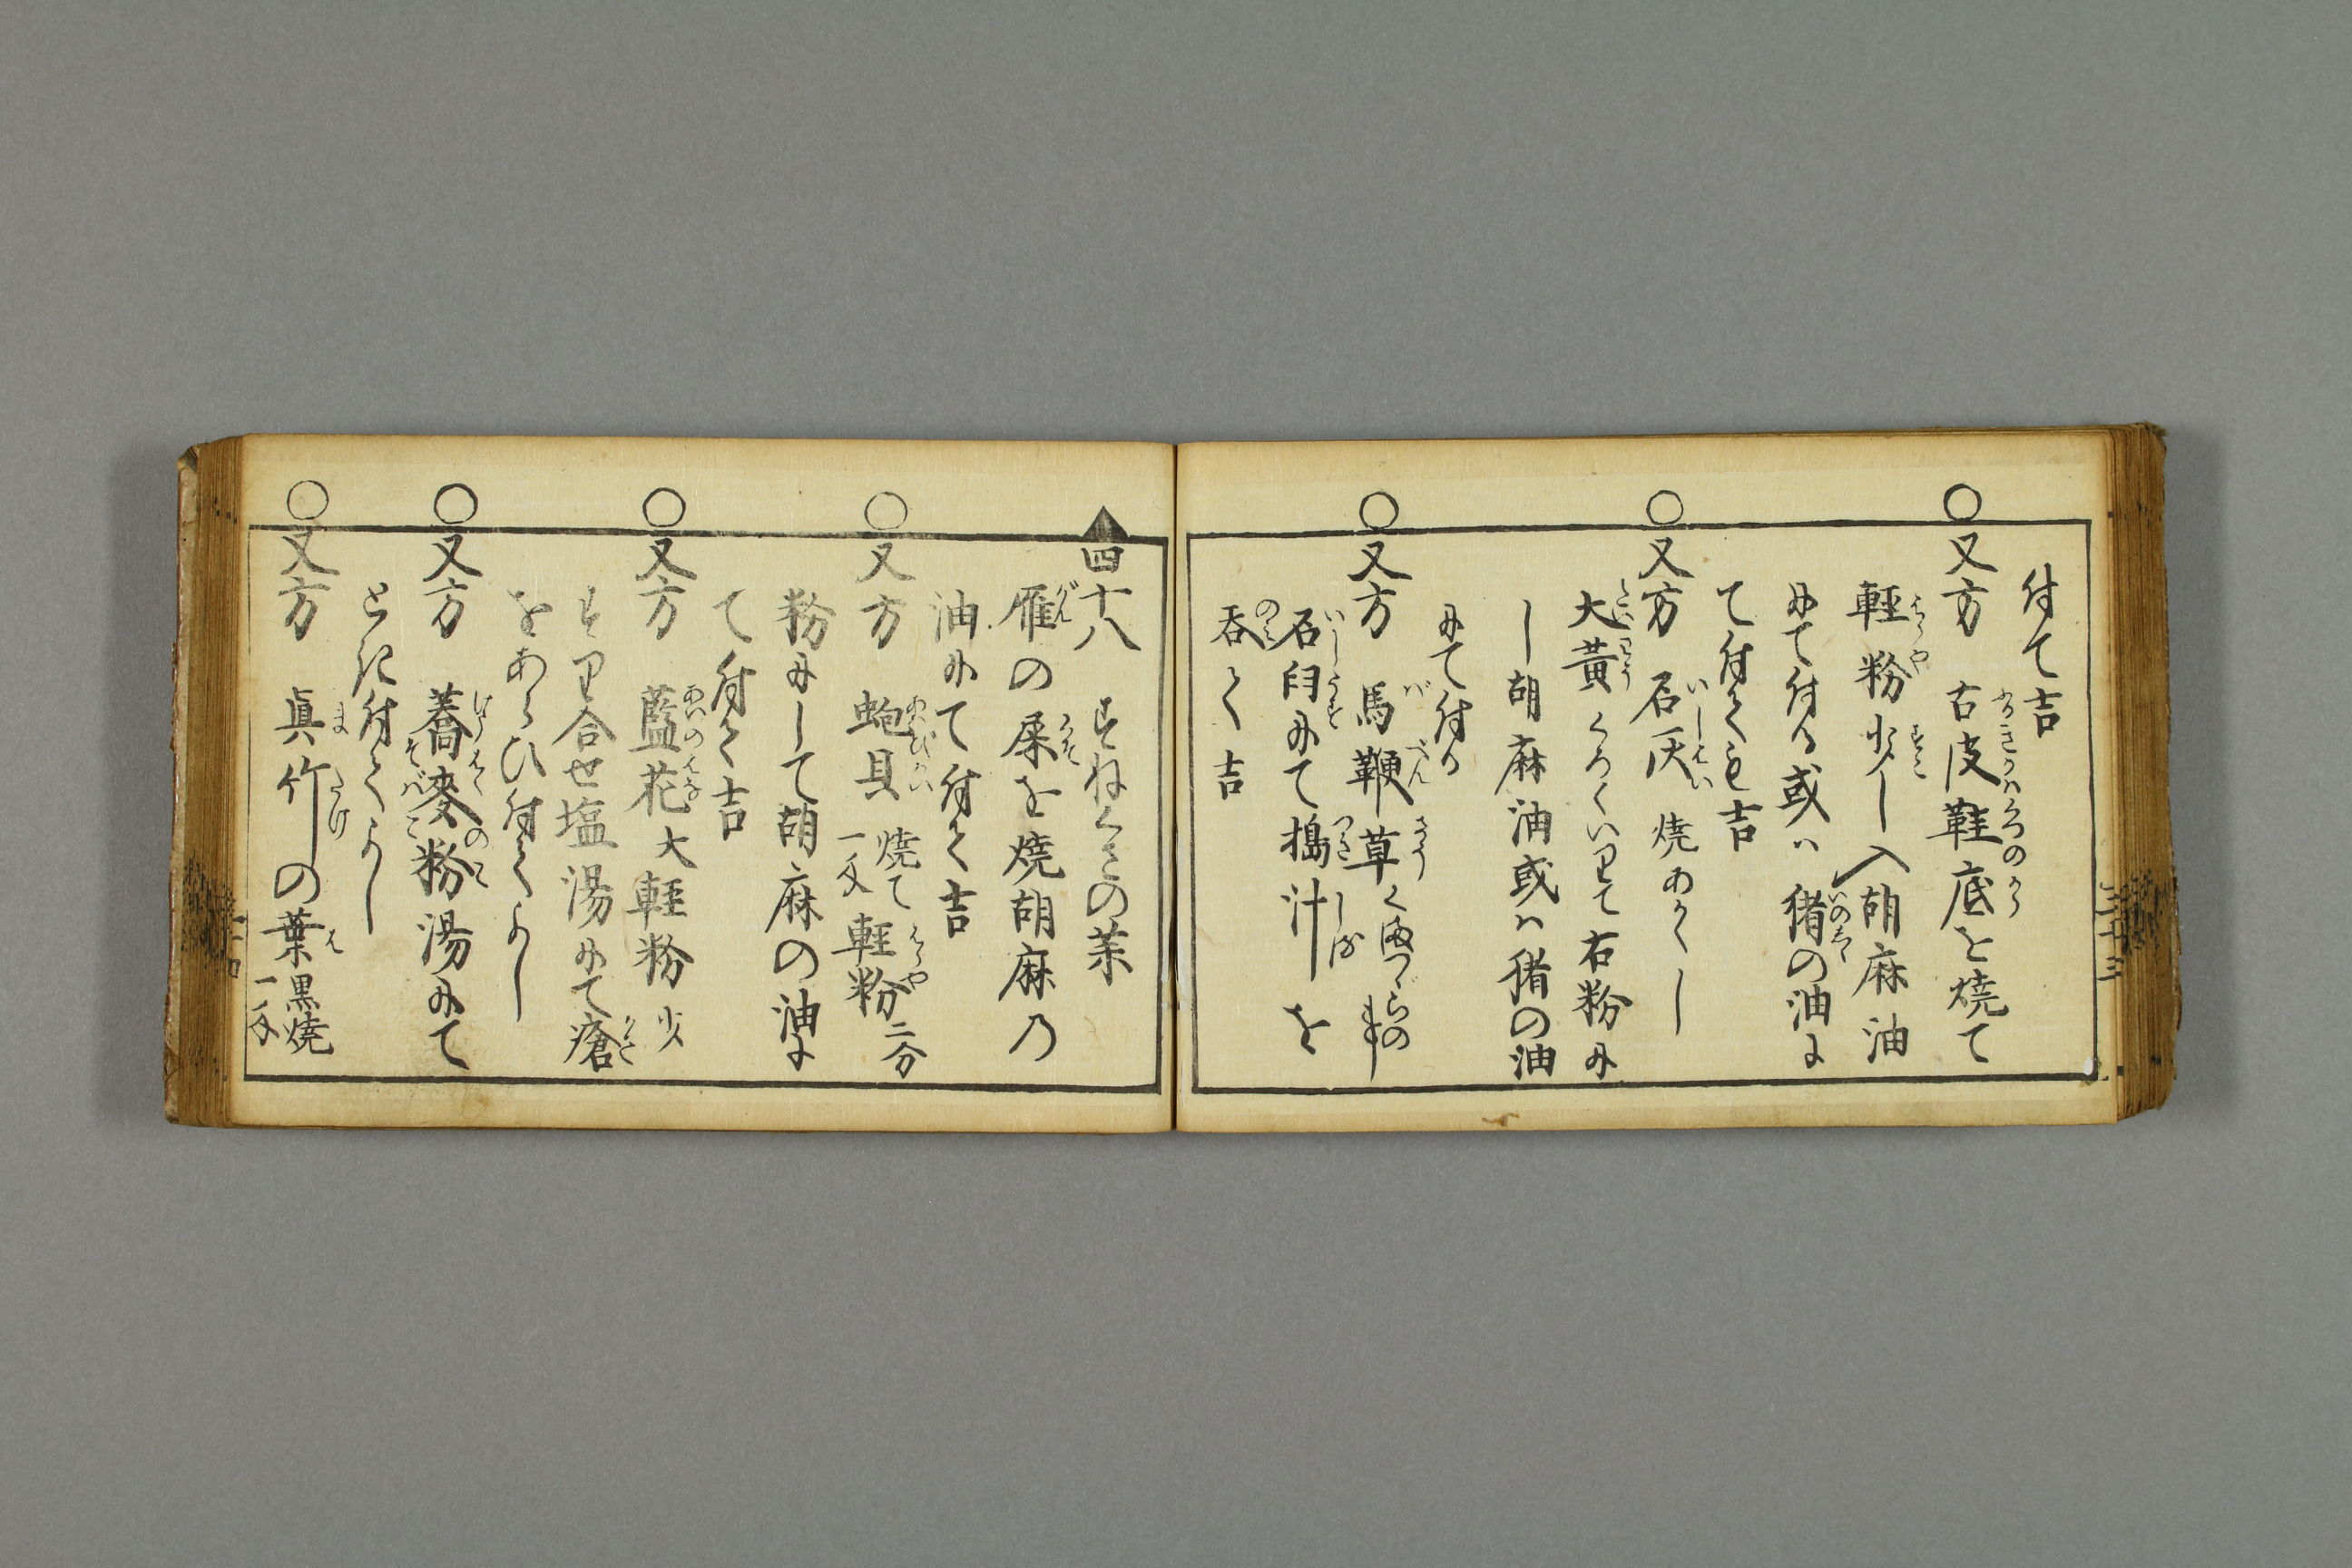 付て吉
○又方 古皮鞋底を焼て
軽粉少し入胡麻油
にて付る或ハ猪の油に
て付ても吉
○又方 石灰 焼あかくし
大黄くろくいりて右粉に
し胡麻油或は猪の油
にて付る
○又方 馬鞭草くまつゞらの事
石臼にて搗汁を
呑て吉
四十八 すねくさの薬
雁の屎を焼胡麻の
油にて付て吉
○又方 蚫貝 焼て一匁 軽粉二分
粉にして胡麻の油に
て付て吉
○又方 藍花大軽粉少
すり合せ塩湯にて瘡
をあらひ付てよし
○又方 蕎麦粉湯にて
とき付てよし
○又方 真竹の葉 黒焼一匁
三十三